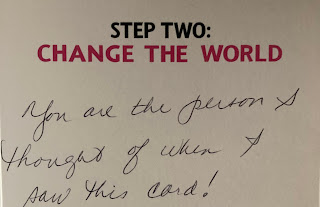 STEP TWO:
CHANGE THE WORLD
You are the person I
thought of when I
saw this card!